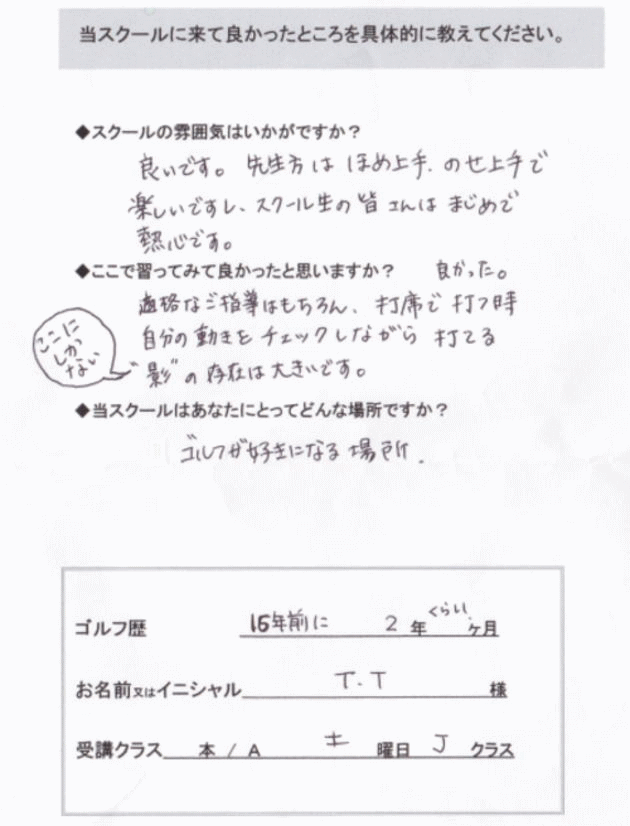 当スクールに来て良かったところを具体的に教えてください。
◆スクールの雰囲気はいかがですか？
良いです。先生方は ほめ上手、のせ上手で
楽しいですし、スクール生の皆さんは まじめで
熱心です。
◆ここで習ってみて良かったと思いますか？ 良かった。
適格なご指導はもちろん、打席で打つ時
自分の動きをチェックしながら 打てる
ここに
しか
ない
"影"の存在は大きいです。
◆当スクールはあなたにとってどんな場所ですか？
ゴルフが好きになる場所.
ゴルフ歴 15年前に 2 年 くらい ヶ月
お名前又はイニシャル T.T 様
受講クラス 本 / A 土 曜日 J クラス